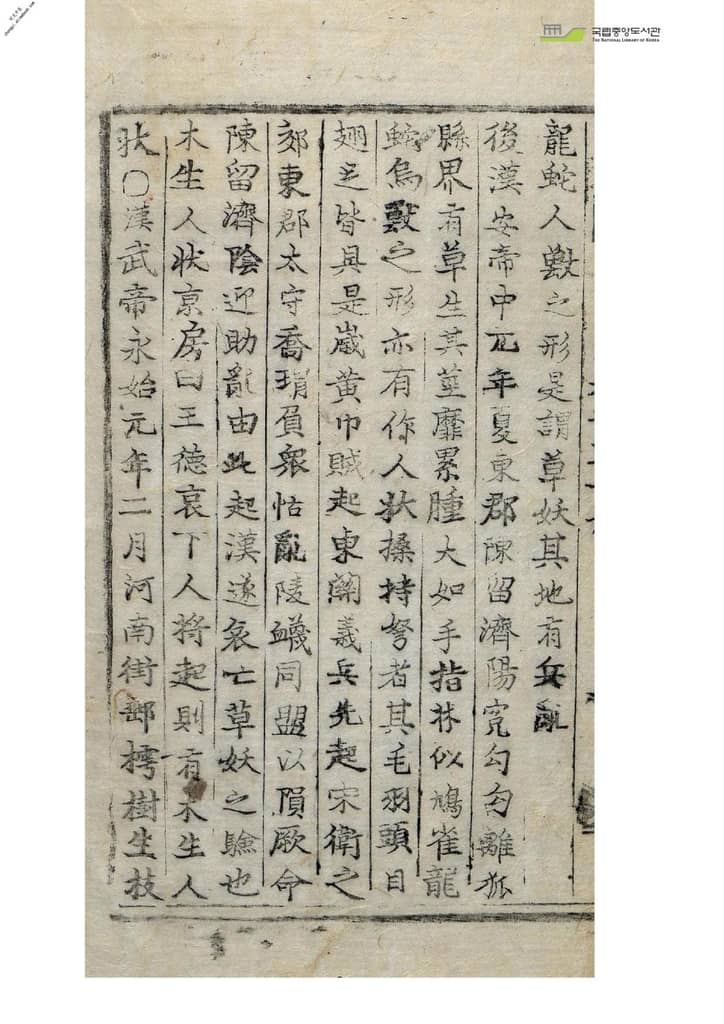 국립중앙도서관
THE NATIONAL LIBRARY OF KOREA
龍蛇人獸之形是謂草妖其地有兵亂
後漢安帝中元年夏東郡陳留濟陽寃勾勾離狐
縣界有草生其莖靡累腫大如手指林似鳩雀龍
蛇鳥獸之形亦有作人狀操持弩者其毛羽頭目
翅足皆具是嵗黄巾賊起東關義兵先起宋衛之
郊東郡太守喬瑁負衆怙亂陵蠛同盟以隕厥命
陳留濟陰迎助亂由此起漢遂哀亡草妖之驗也
木生人狀京房曰王德哀下人将起則有木生人
狀○漢武帝永始元年二月河南街郵樗樹生技